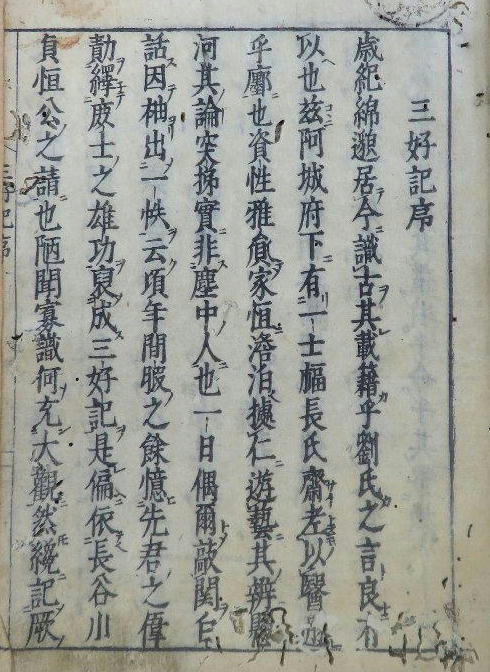 三好記序
歳紀綿邈居今識古其載籍乎劉氏之言良有
以也茲阿城府下有一士幅長氏齋老以醫
乎鄽也資性雅貪家恒澹泊㨿仁遊藝其辨懸
河其論突梯實非塵中人也一日偶爾敲関白
話因柚出一帙云頃年間暇之餘憶先君之偉
勣繹庱士之雄功裒成三好記是偏依長谷川
貞恒公之請也陋聞寡識何充大觀然纔記厥